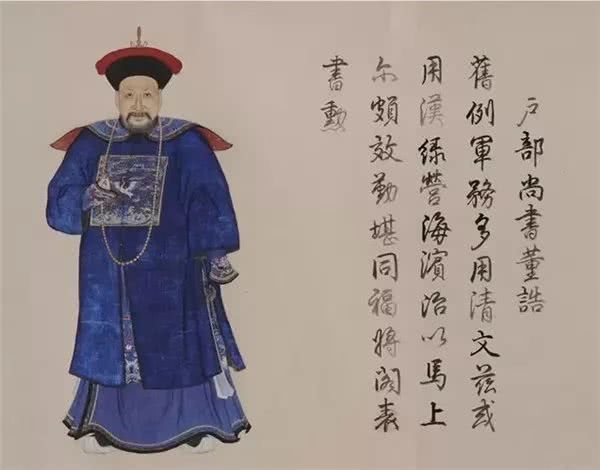 户部尚書董誥
舊例軍務多用清文茲或
用漢綠營海濱治以馬上
尓頗效勤堪同福將閣表
書勳